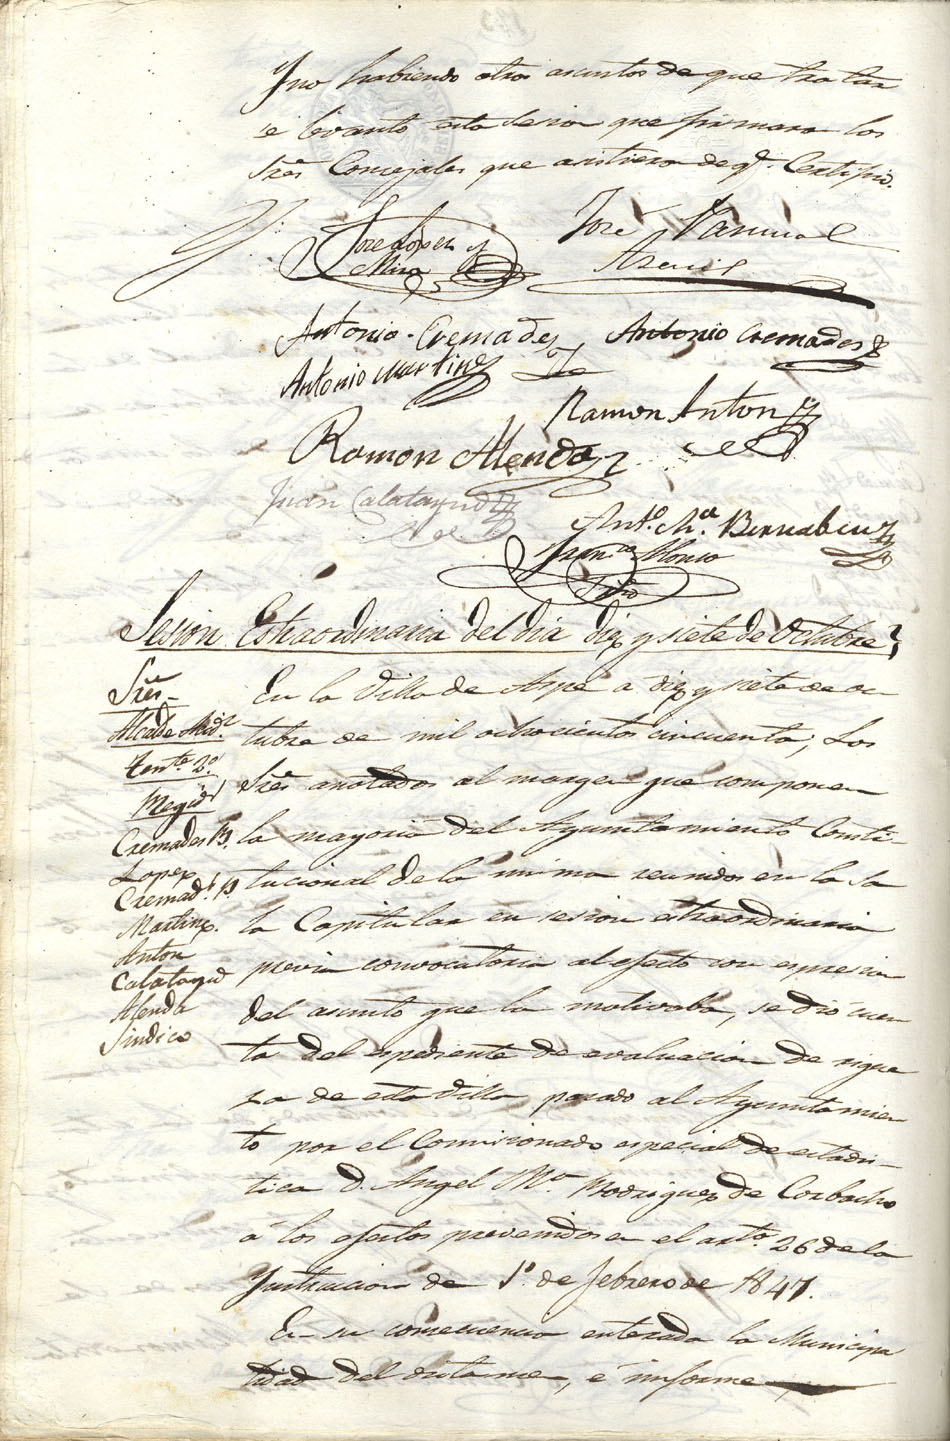 Y no habiendo otros asuntos de que tratar
se levantó esta sesion que firmaron los
Sres Concejales que asistieron de q.e Certifico.
Jose Lopez y
Mira
José Pascual
Asencil
Antonio Cremades
Antonio Cremades
Antonio Martinez
Ramon Anton
Ramon Alenda
Juan Calatayud
Ant.o M.a Bernabeu
Fran.co Alonso
Srio
Sesion Estraordinaria del dia diez y siete de Octubre
Sres
Alcalde
Tente. 2.o
Regid.s
Cremades B.
Lopez
Cremad.s P.
Martinz.
Anton
Calatayud
Alenda
Sindico
En la Villa de Aspe a diez y siete de oc-
tubre de mil ochocientos cincuenta, los
Sres anotados al margen que componen
la mayoria del Ayuntamiento Consti-
tucional de la misma reunidos en la Sa
la Capitular en sesion estraordinaria
previa convocatoria al efecto con espresion
del asunto que la motivaba, se dió cuen
ta del espediente de evaluacion de rique
za de esta Villa pasado al Ayuntamien
to por el Comisionado especial de estadis-
tica D. Angel M.a Rodriguez de Corbacho
á los efectos prevenidos en el arto. 26 de la
Instruccion de 1.o de febrero de 1847.
En su consecuencia enterada la Municipa
lidad del dictamen, é informe